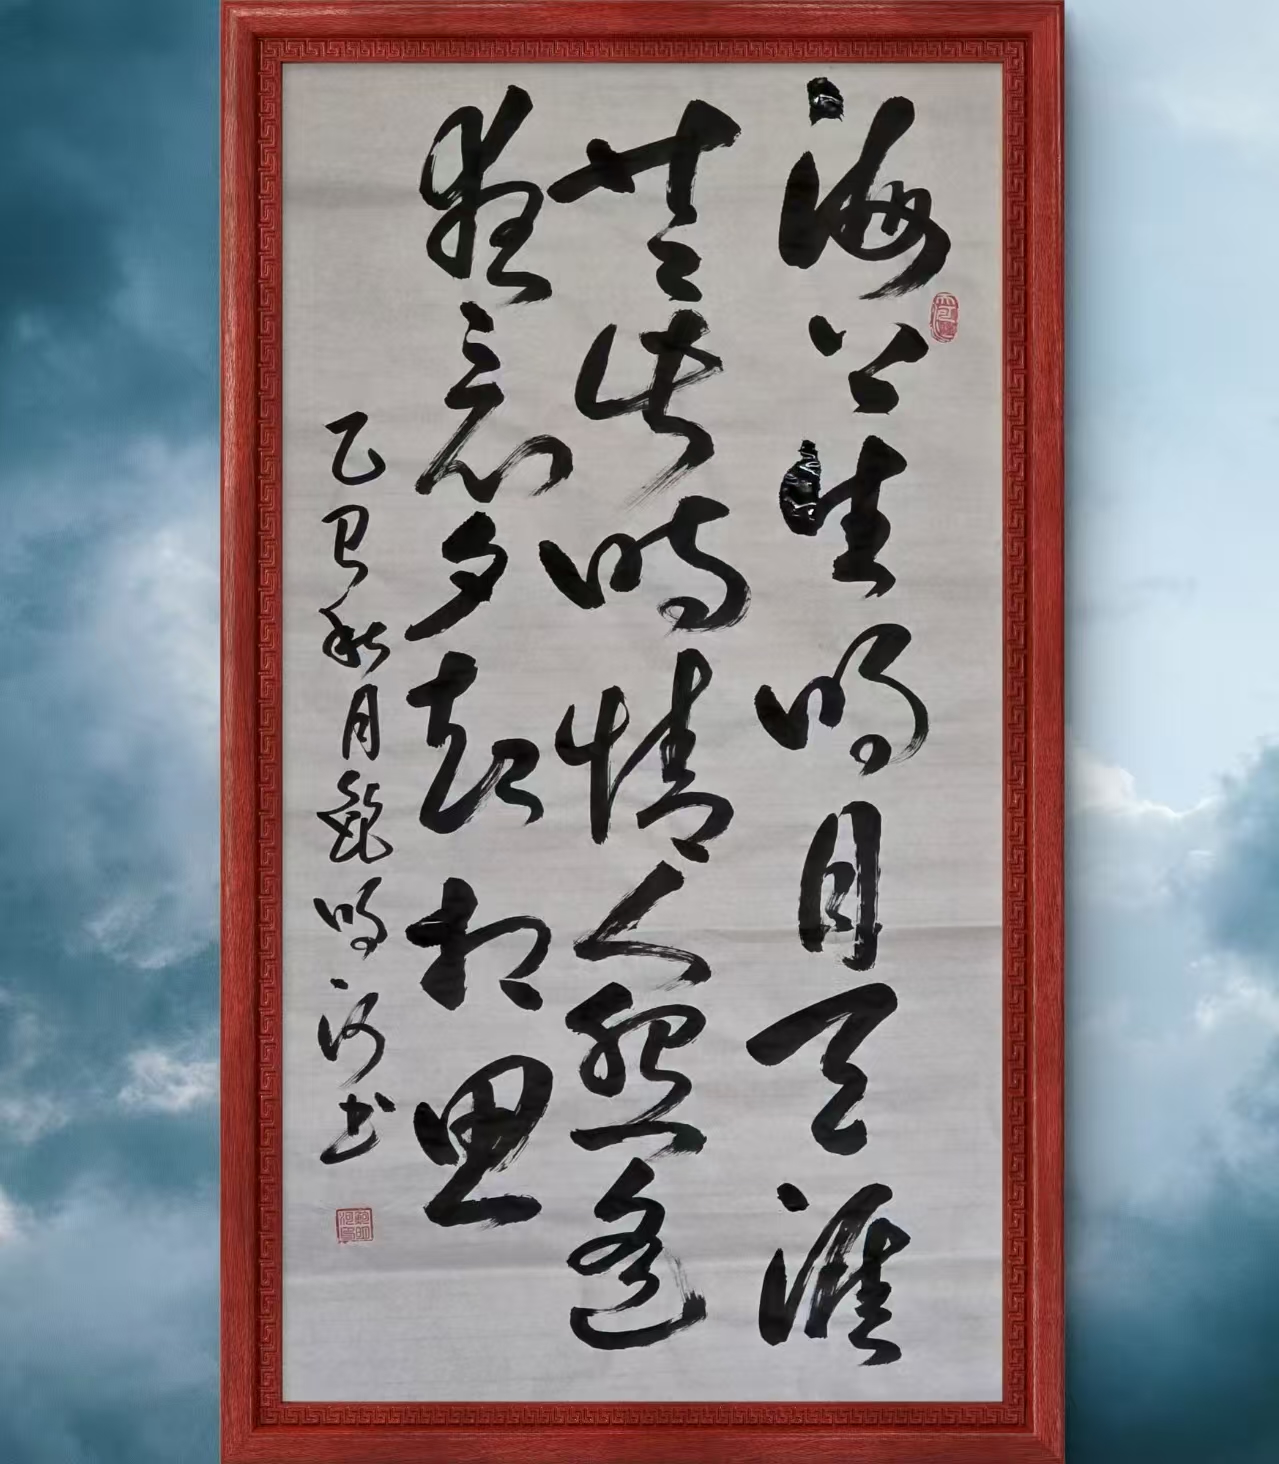 海上生明月天涯
共此時情人怨遙
夜竟夕起相思
乙巳秋月鮑明河書